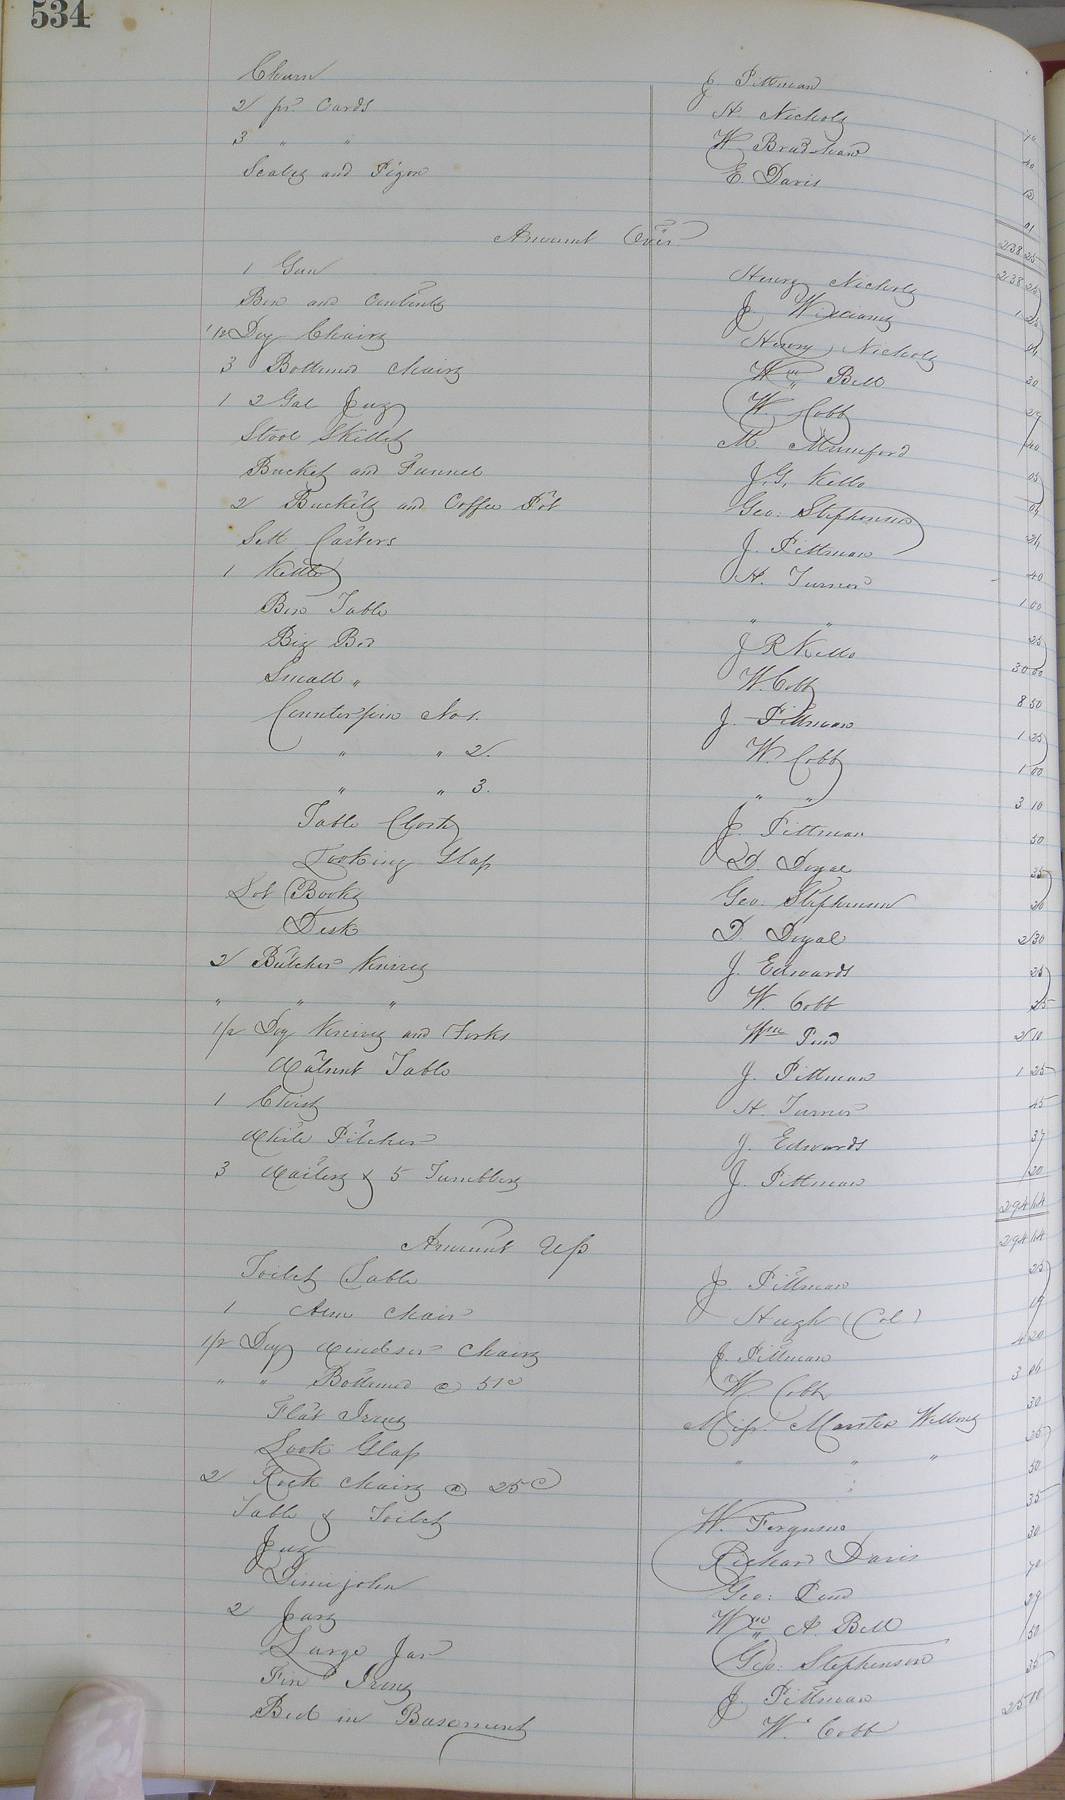 534
Churn J. Pittman 10
2 pr. Cards H. Nichols 40
3 " " W Bradshaw
Scales and Pigon E. Davis 01
238 25
Amount Over 238 25
1 Gun Henry Nichols 1 25
Box and Contents J. Williams
1/2 Doz Chairs Henry Nichols 30
3 Bottomed chairs Wm Bell
1 2 Gal Jug W. Cobb 40
Stool Skillet M. Mumford 05
Bucket and Funnel J. G. Kello
2 Buckets and Coffee Pot Geo: Stephenson
Sett Casters J. Pittman 40
1 Kettle H. Turner 1 00
Box Table " " 25
Big Bed J R Kello 30 00
Small " W. Cobb 8 50
Counterpin No 1. J. Pittman 1 25
" " 2. W. Cobb 1 00
" " 3. " " 3 10
Table Cloth J. Pittman 50
Looking Glass D. Doyal 35
Lot Books Geo. Stephenson 20
Desk D Doyal 2 30
2 Butcher Knives J. Edwards 25
" " " W. Cobb 25
1/2 Doz Knives and Forks Wm 2 10
Walnut Table J. Pittman 1 25
1 Chest H. Turner 45
White Pitcher J. Edwards 37
3 Waiters & 5 Tumblers J. Pittman 20
294 64
Amount Up 294 64
Toilet Table J. Pittman 25
1 Arm Chair Hugh (Col)
1/2 Doz Windsor Chairs J. Pittman 4 20
" " Bottomed @ 51c W Cobb 3 06
Flat Irons Miss. 30
Look Glass " " " 25
2 Rock Chairs @ 25c 50
Table & Toilet W. Ferguson 35
Jug Richard Davis 30
Dimijohn Geo: 70
2 Jars Wm A. Bell 29
Large Jar Geo: Stephenson 50
Fire Irons J. Pittman 35
Bed in Basement W. Cobb 25 10